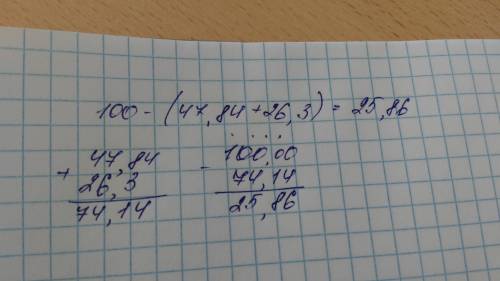 100 - (47,84 + 26,3) = 25,86
+ 47,84
26,3
74,14
- 100,00
74,14
25,86